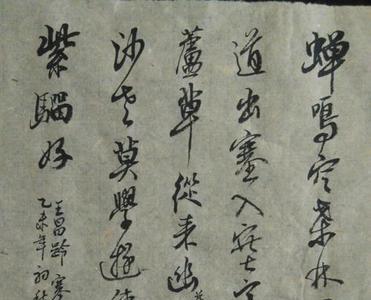 蟬鳴空桑林
道出塞入塞
蘆草從來幽
沙老莫學遊
紫騮好
王昌齡塞
乙未年初秋